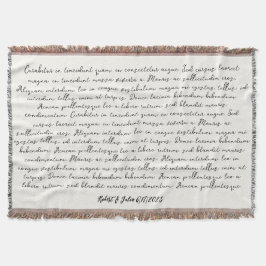 Curabitur in tincidunt quam, in consectetur augue. Sed cursus laoreet
magna, in tincidunt massa viverra a. Mauris ac sollicitudin eros.
Aliquam interdum leo in congue vestibulum magna mi egestas tellus, id
interdum enim sem at turpis. Donec laoreet bibendum bibendum. Aenean
pellentesque leo a libero rutrum sed blandit mauris
condimentum. Curabitur in tincidunt quam, in consectetur augue. Sed
cursus laoreet magna, in tincidunt massa viverra a. Mauris ac
sollicitudin eros. Aliquam interdum leo in congue vestibulum magna mi
egestas tellus, id interdum enim sem at turpis. Donec laoreet bibendum
bibendum. Aenean pellentesque leo a libero rutrum sed blandit mauris
condimentum. Mauris ac sollicitudin eros. Aliquam interdum leo in
congue vestibulum magna mi egestas tellus, id interdum enim sem at
turpis. Donec laoreet bibendum bibendum. Aenean pellentesque leo a
libero rutrum sed blandit mauris condimentum. Aenean pellentesque
Robert & Julia 6/17/2023